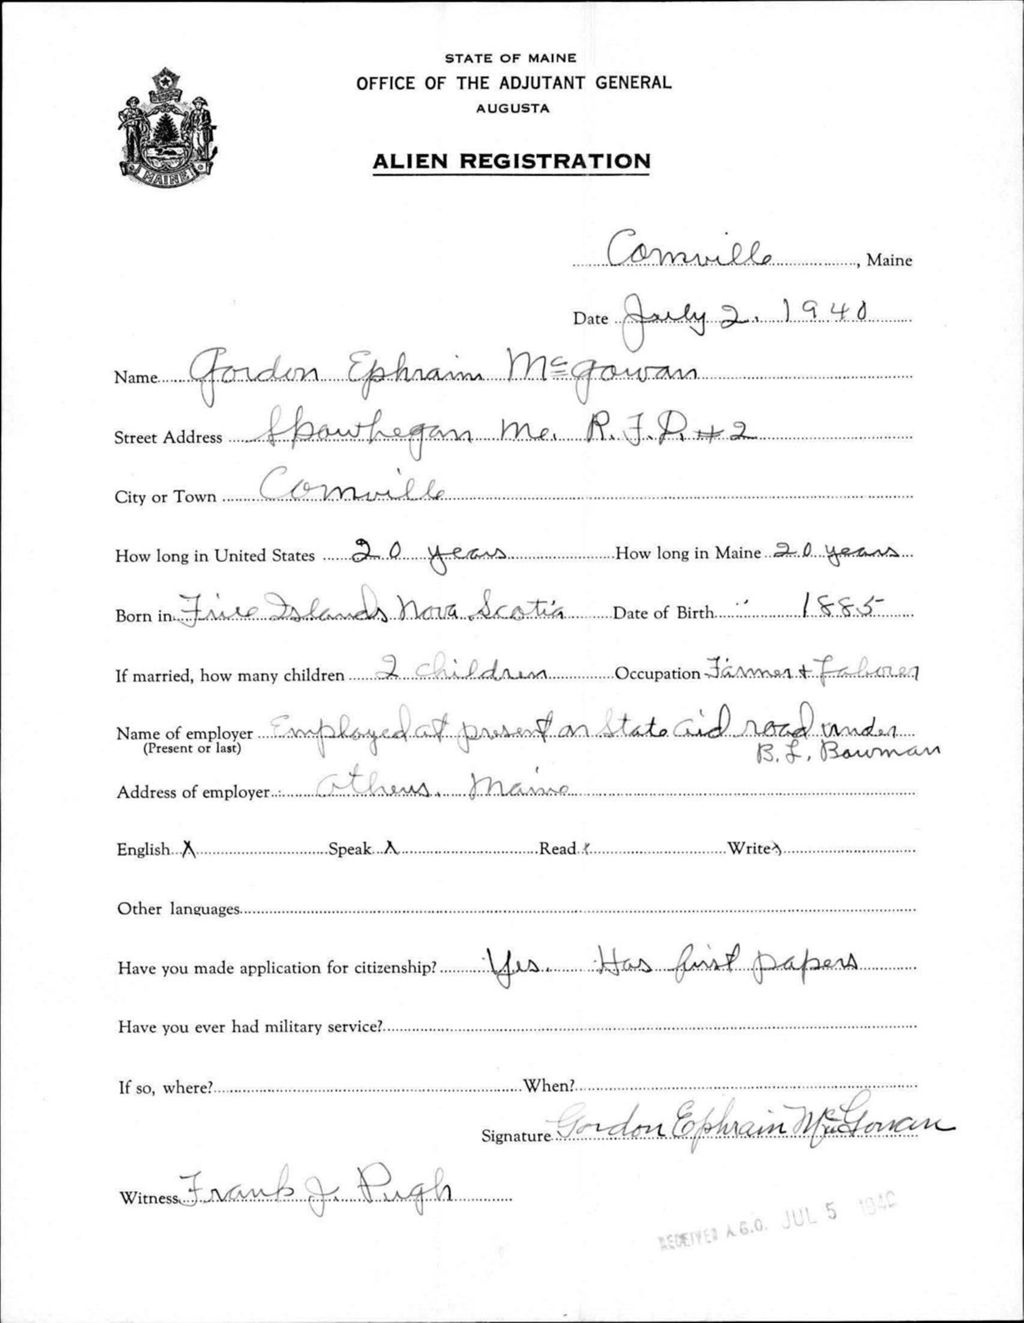 STATE OF MAINE
OFFICE OF THE ADJUTANT GENERAL
AUGUSTA
ALIEN REGISTRATION
MAINE
Cornville, Maine
Date July 2, 1940
Name Gordon Ephraim McGowan
Street Address Skowhegan Me. R.F.D. #2
City or Town Cornville
How long in United States 20 years How long in Maine 20 years
Born in Five Islands Nova Scotia Date of Birth 1885
If married, how many children 2 children Occupation Farmer + Laborer
Name of employer Employed at present on State aid road under
(Present or last) B. L. Bowman
Address of employer Athens, Maine
English X Speak X Read Write X
Other languages
Have you made application for citizenship? Yes. Has first papers
Have you ever had military service?
If so, where? When?
Signature Gordon Ephraim McGowan
Witness Frank J. Pugh
RECEIVED A.G.O. JUL 5 1940